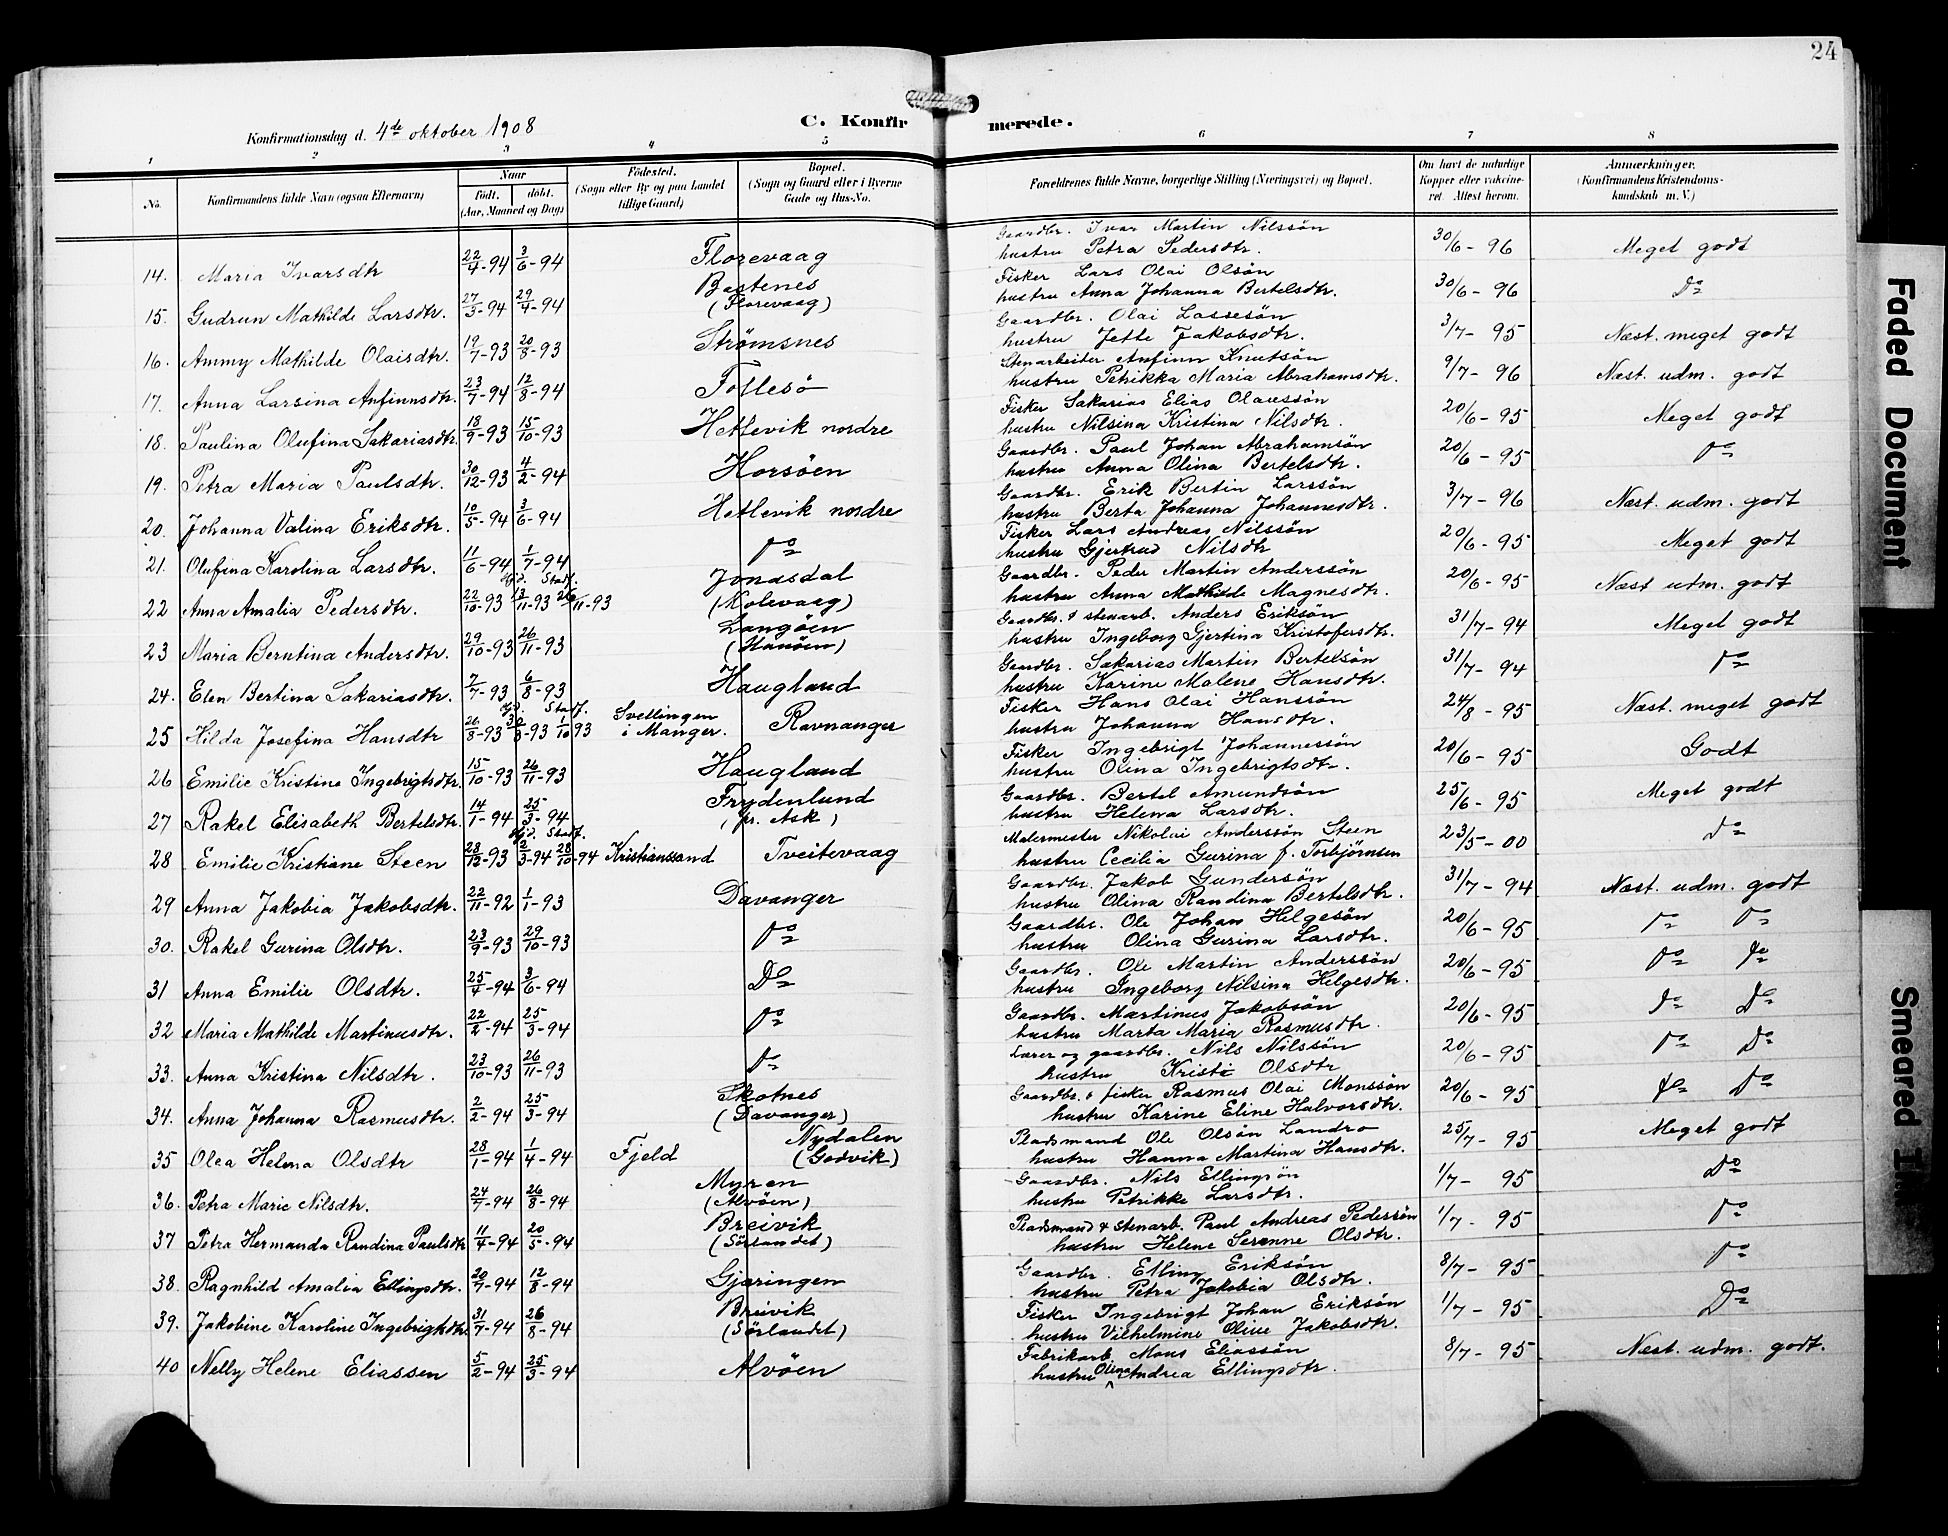 24
C. Konfirmerede.
Konfirmationsdag d. 4de oktober 1908
1 2 3 4 5 6 7 8
No. Konfirmandens fulde Navn (ogsaa Efternavn) Naar født. døbt. (Aar, Maaned og Dag) Fødested. (Sogn eller By og paa Landet tillige Gaard) Bopæl. (Sogn og Gaard eller i Byerne Gade og Hus-No. Forældrenes fulde Navne, borgerlige Stilling (Næringsvei) og Bopæl. Om havt de naturlige Kopper eller vaccineret. Attest herom. Anmærkninger. (Konfirmandens Kristendomskundskab m. V.)
14. Maria Ivarsdtr 22/4-94 3/6-94 Florevaag Gaardbr. Ivar Martin Nilssön 30/6-96 Meget godt
hustru Petra Pedersdtr.
15. Gudrun Mathilde Larsdtr. 27/3-94 29/4-94 Bastenes (Florevaag) Fisker Lars Olai Olsön 30/6-96 Do
hustru Anna Johanna Bertelsdtr.
16. Ammy Mathilde Olaisdtr. 19/7-93 20/8-93 Strømsnes Gaardbr. Olai Lassesön 3/7-95 Næst. meget godt
hustru Jette Jakobsdtr.
17. Anna Larsina Anfinnsdtr. 23/7-94 12/8-94 Follesö Stenarbeider Anfinn Knutsön 9/7-96 Næst. udm. godt
hustru Petrikka Maria Abrahamsdtr.
18. Paulina Olufina Sakariasdtr. 18/9-93 15/10-93 Hetlevik nordre Fisker Sakarias Elias Olaussön 20/6-95 Meget godt
hustru Nilsina Kristina Nilsdtr.
19. Petra Maria Paulsdtr. 30/12-93 4/2-94 Horsöen Gaardbr. Paul Johan Abrahamsön 20/6-95 Do
hustru Anna Olina Bertelsdtr.
20. Johanna Valina Eriksdtr. 10/5-94 3/6-94 Hetlevik nordre Gaardbr. Erik Bertin Larssön 3/7-96 Næst. udm. godt
hustru Berta Johanna Johannesdtr.
21. Olufina Karolina Larsdtr. 11/6-94 1/7-94 Do Fisker Lars Andreas Nilssön 20/6-95 Meget godt
hustru Gjertrud Nilsdtr
22 Anna Amalia Pedersdtr. 22/10-93 Hjd. 13/11-93 Stadf. 26/11-93 Jonasdal (Kolevaag) Gaardbr. Peder Martin Anderssön 20/6-95 Næst udm. godt
hustru Anna Mathilde Magnesdtr.
23 Maria Berntina Andersdtr. 29/10-93 26/11-93 Langöen (Hanöen) Gaardbr. & stenarb. Anders Eriksön 31/7-94 Meget godt
hustru Ingeborg Gjertina Kristofersdtr.
24. Elen Bertina Sakariasdtr. 7/7-93 6/8-93 Haugland Gaardbr. Sakarias Martin Bertelsön 31/7-94 Do
hustru Karine Malene Hansdtr.
25 Hilda Josefina Hansdtr 26/8-93 Hjd. 30/8-93 Stadf. 1/10 93 Svellingen i Manger. Ravnanger Fisker Hans Olai Hanssön 24/8-95 Næst. meget godt
hustru Johanna Hansdtr.
26 Emilie Kristina Ingebrigtsdtr. 15/10-93 26/11-93 Haugland Fisker Ingebrigt Johannessön 20/6-95 Godt
hustru Olina Ingebrigtsdtr.
27 Rakel Elisabeth Bertelsdtr. 14/1-94 25/3-94 Frydenlund (pr. Ask) Gaardbr. Bertel Amundsön 25/6-95 Meget godt
hustru Helena Larsdtr.
28 Emilie Kristiane Steen 28/12-93 Hjd. 2/3-94 Stadf. 28/10-94 Kristianssand Tveitevaag Malermester Nikolai Anderssön Steen 23/5-00 Do
hustru Cecilia Gurina f. Torbjörnsen
29 Anna Jakobia Jakobsdtr. 22/11-92 1/1-93 Davanger Gaardbr. Jakob Gundersön 31/7-94 Næst. udm. godt
hustru Olina Randina Bertelsdtr.
30. Rakel Gurina Olsdtr. 23/9-93 29/10-93 Do Gaardbr. Ole Johan Helgesön 20/6-95 Do Do
hustru Olina Gurina Larsdtr.
31 Anna Emilie Olsdtr. 25/4-94 3/6-94 Do Gaardbr. Ole Martin Anderssön 20/6-95 Do Do
hustru Ingeborg Nilsina Helgesdtr.
32 Maria Mathilde Martinusdtr. 22/2-94 25/3-94 Do Gaardbr. Martinus Jakobsön 20/6-95 Do Do
hustru Marta Maria Rasmusdtr.
33. Anna Kristina Nilsdtr. 23/10-93 26/11-93 Do Lærer og gaardbr. Nils Nilssön 20/6-95 Do Do
hustru Kristi Olsdtr
34. Anna Johanna Rasmusdtr. 2/2-94 25/3-94 Skotnes (Davanger) Gaardbr. & fisker Rasmus Olai Monssön 20/6-95 Do Do
hustru Karine Eline Halvorsdtr.
35 Olea Helena Olsdtr 28/1-94 1/4-94 Fjeld Nydalen (Godvik) Pladsmand Ole Olsön Landro 25/7-95 Meget godt
hustru Hanna Martina Hansdtr.
36. Petra Marie Nilsdtr. 24/7-94 26/8-94 Myren (Alvöen) Gaardbr. Nils Ellingsön 1/7-95 Do
hustru Petrikke Larsdtr.
37 Petra Hermanda Randina Paulsdtr 11/4-94 20/5-94 Breivik (Sörlandet) Pladsmand & stenarb. Paul Andreas Pederssön 1/7-95 Do
hustru Helene Serenne Olsdtr.
38. Ragnhild Amalia Ellingsdtr. 20/7-94 12/8-94 Gjæringen Gaardbr. Elling Eriksön 8/7-95 Do
hustru Petra Jakobia Olsdtr.
39. Jakobine Karoline Ingebrigtsdtr. 31/7-94 26/8-94 Breivik (Sörlandet) Fisker Ingebrigt Johan Eriksön 1/7-95 Do
hustru Vilhelmine Oline Jakobsdtr.
40 Nelly Helene Eliassen 5/2-94 25/3-94 Alvöen Fabrikarb. Mons Eliassön 8/7-95 Næst. udm. godt.
hustru Olina Andrea Ellingsdtr.
Faded Document
Smeared Ink